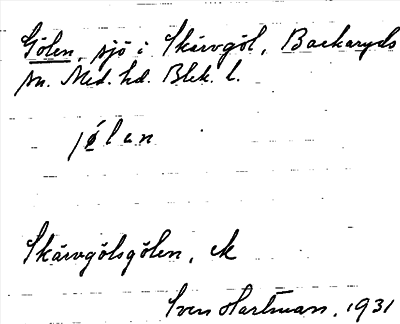 Gölen, sjö i Skärvgöl, Backaryds
sn. Med. hd. Blek. l.
jö́lɛn
Skärvgölsgölen, ek
Sven Hartman, 1931